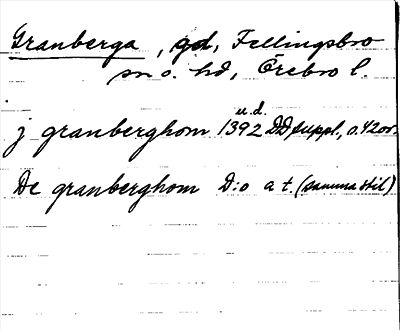 Granberga, gd, Fellingsbro
sn o. hd, Örebro l.
j granberghom 1392 u.d. DD suppl, o. 42 or.
De granberghom D:o a t. (samma stil)